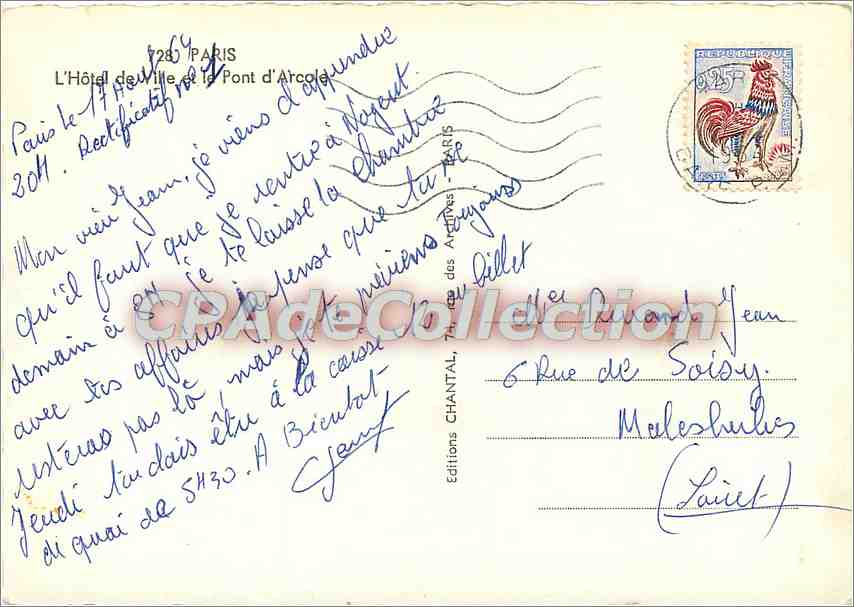 728) PARIS
L'Hôtel de Ville et le Pont d'Arcole
Paris le 17 Août 64
20H. Rectificatif n° 1
Mon vieux Jean, je viens d'apprendre
qu'il faut que je rentre à Nogent
demain à 8H je te laisse la chambre
avec tes affaires je pense que tu ne
resteras pas là, mais je te préviens toujours
Jeudi tu dois être à la caisse
di quai de 5H30. A Bientot
billet
Editions CHANTAL, 74, rue des Archives - PARIS
REPUBLIQUE FRANÇAISE
0,25
POSTES
Jean
6 Rue de Soisy.
Malesherbes
(Loiret)
CPAdeCollection.com